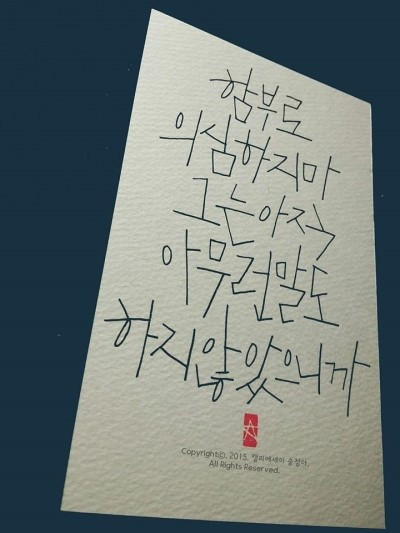 함부로
의심하지마
그는아직
아무런말도
하지않았으니까
Copyrightⓒ, 2015. 캘리에세이 송정아.
All Rights Reserved.